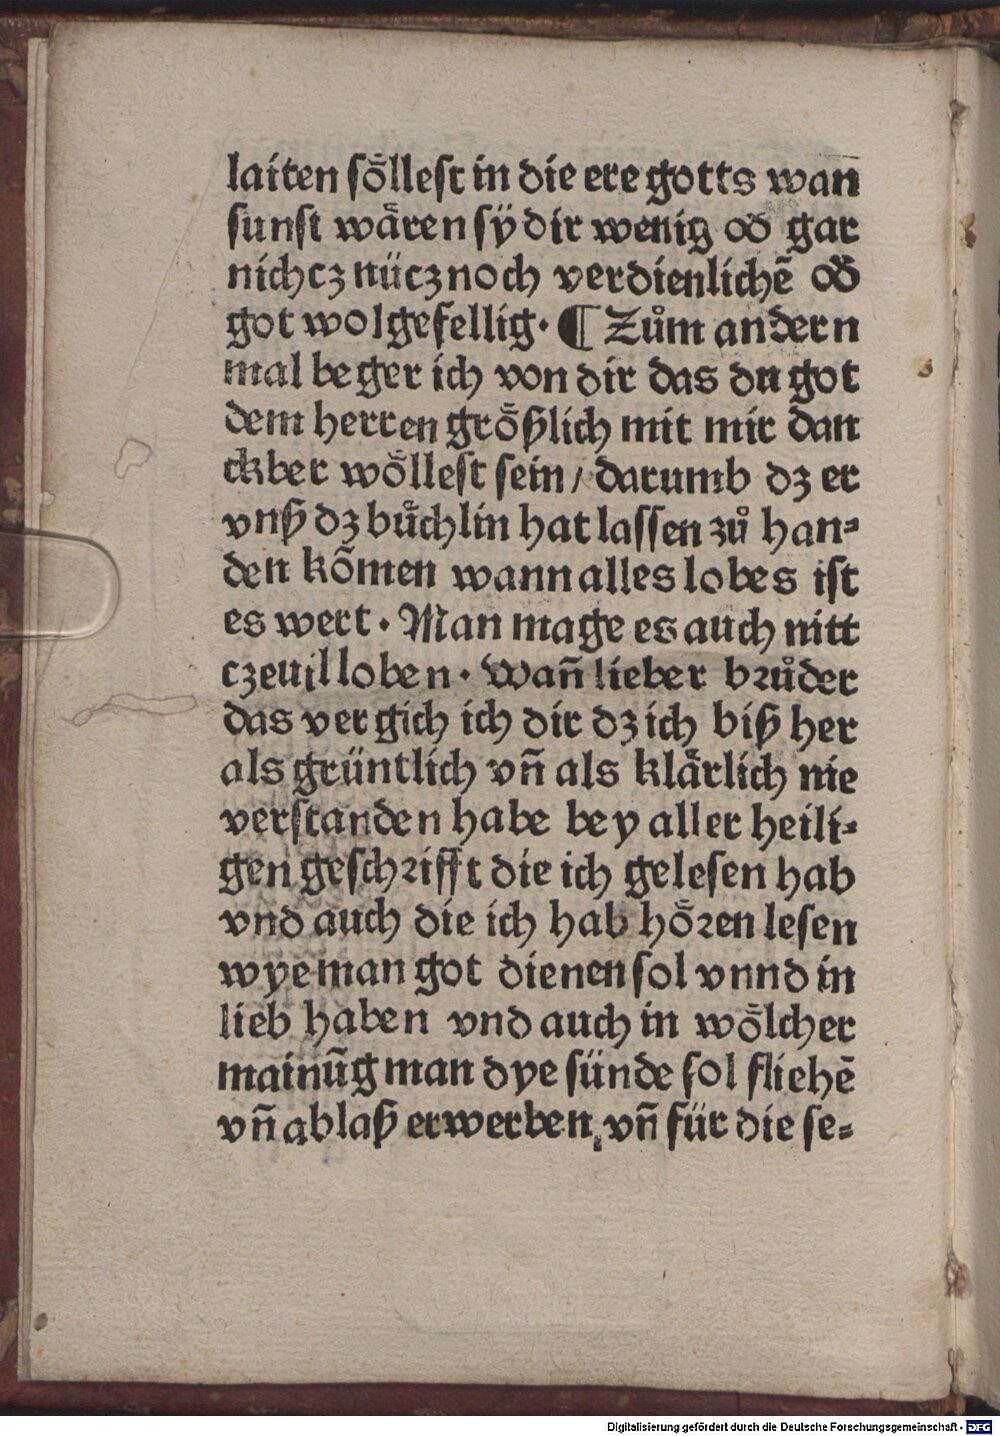 laiten soͤllest in die ere gotts wan̄
sunst waͤren sÿ dir wenig od̄ gar
nichcz nücz noch verdienlichē od̄
got wolgefellig. ¶ Zuͦm andern
mal beger ich von dir das du got
dem herren groͤßlich mit mir dan
ckber woͤllest sein / darumb dz er
vnß dz buͤchlin hat lassen zuͦ han⸗
den kōmen wann alles lobes ist
es wert. Man mage es auch nitt
czeuil loben. Wan̄ lieber bꝛuͦder
das vergich ich dir dz ich biß her
als grüntlich vn̄ als klaͤrlich nie
verstanden habe bey aller heili⸗
gen geschꝛifft die ich gelesen hab
vnd auch die ich hab hoͤꝛen lesen
wye man got dienen sol vnnd in
lieb haben vnd auch in woͤlcher
mainūg man dye sünde sol fliehē
vn̄ ablaß erwerben, vn̄ für die se⸗
Digitalisierung gefördert durch die Deutsche Forschungsgemeinschaft - DFG